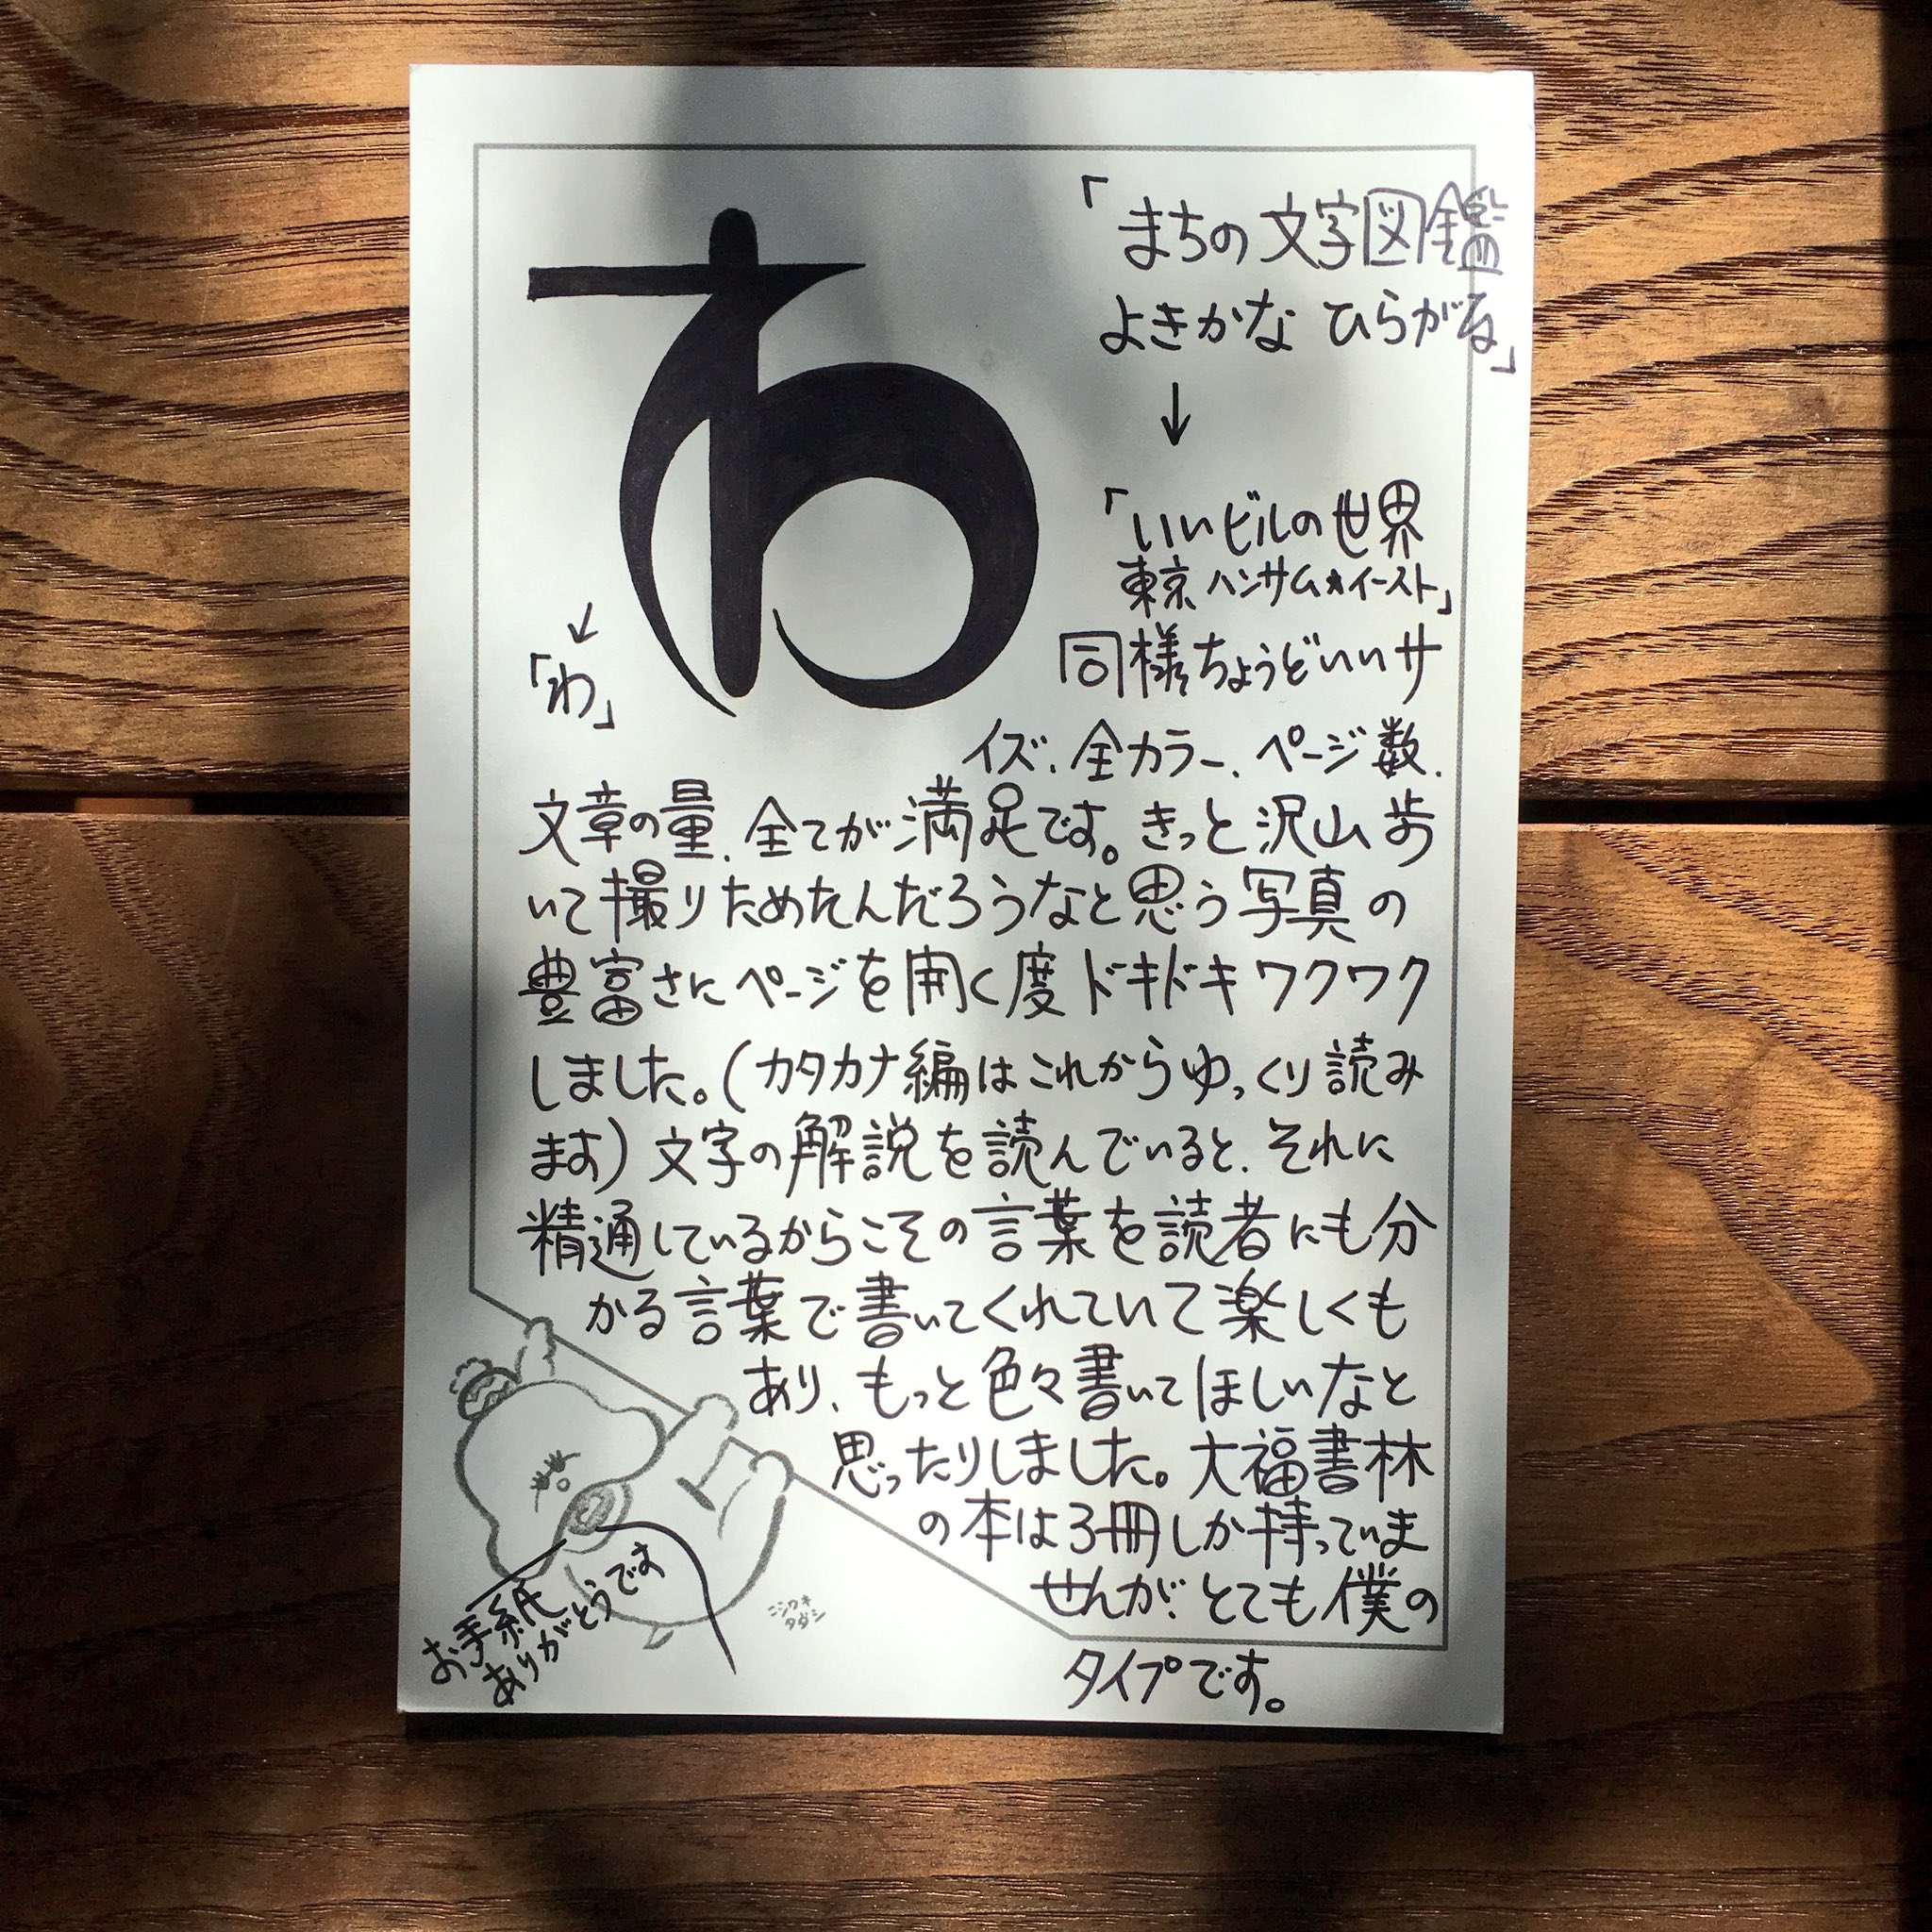 わ
「わ」
「まちの文字図鑑
よきかな ひらがな」
↓
「いいビルの世界
東京ハンサム★イースト」
同様ちょうどいいサ
イズ、全カラー、ページ数、
文章の量、全てが満足です。きっと沢山歩
いて撮りためたんだろうなと思う写真の
豊富さにページを開く度ドキドキワクワク
しました。(カタカナ編はこれからゆっくり読み
ます)文字の解説を読んでいると、それに
精通しているからこその言葉を読者にも分
かる言葉で書いてくれていて楽しくも
あり、もっと色々書いてほしいなと
思ったりしました。大福書林
の本は3冊しか持っていま
せんが、とても僕の
タイプです。
お手紙
ありがとうです
ニシワキ
タダシ